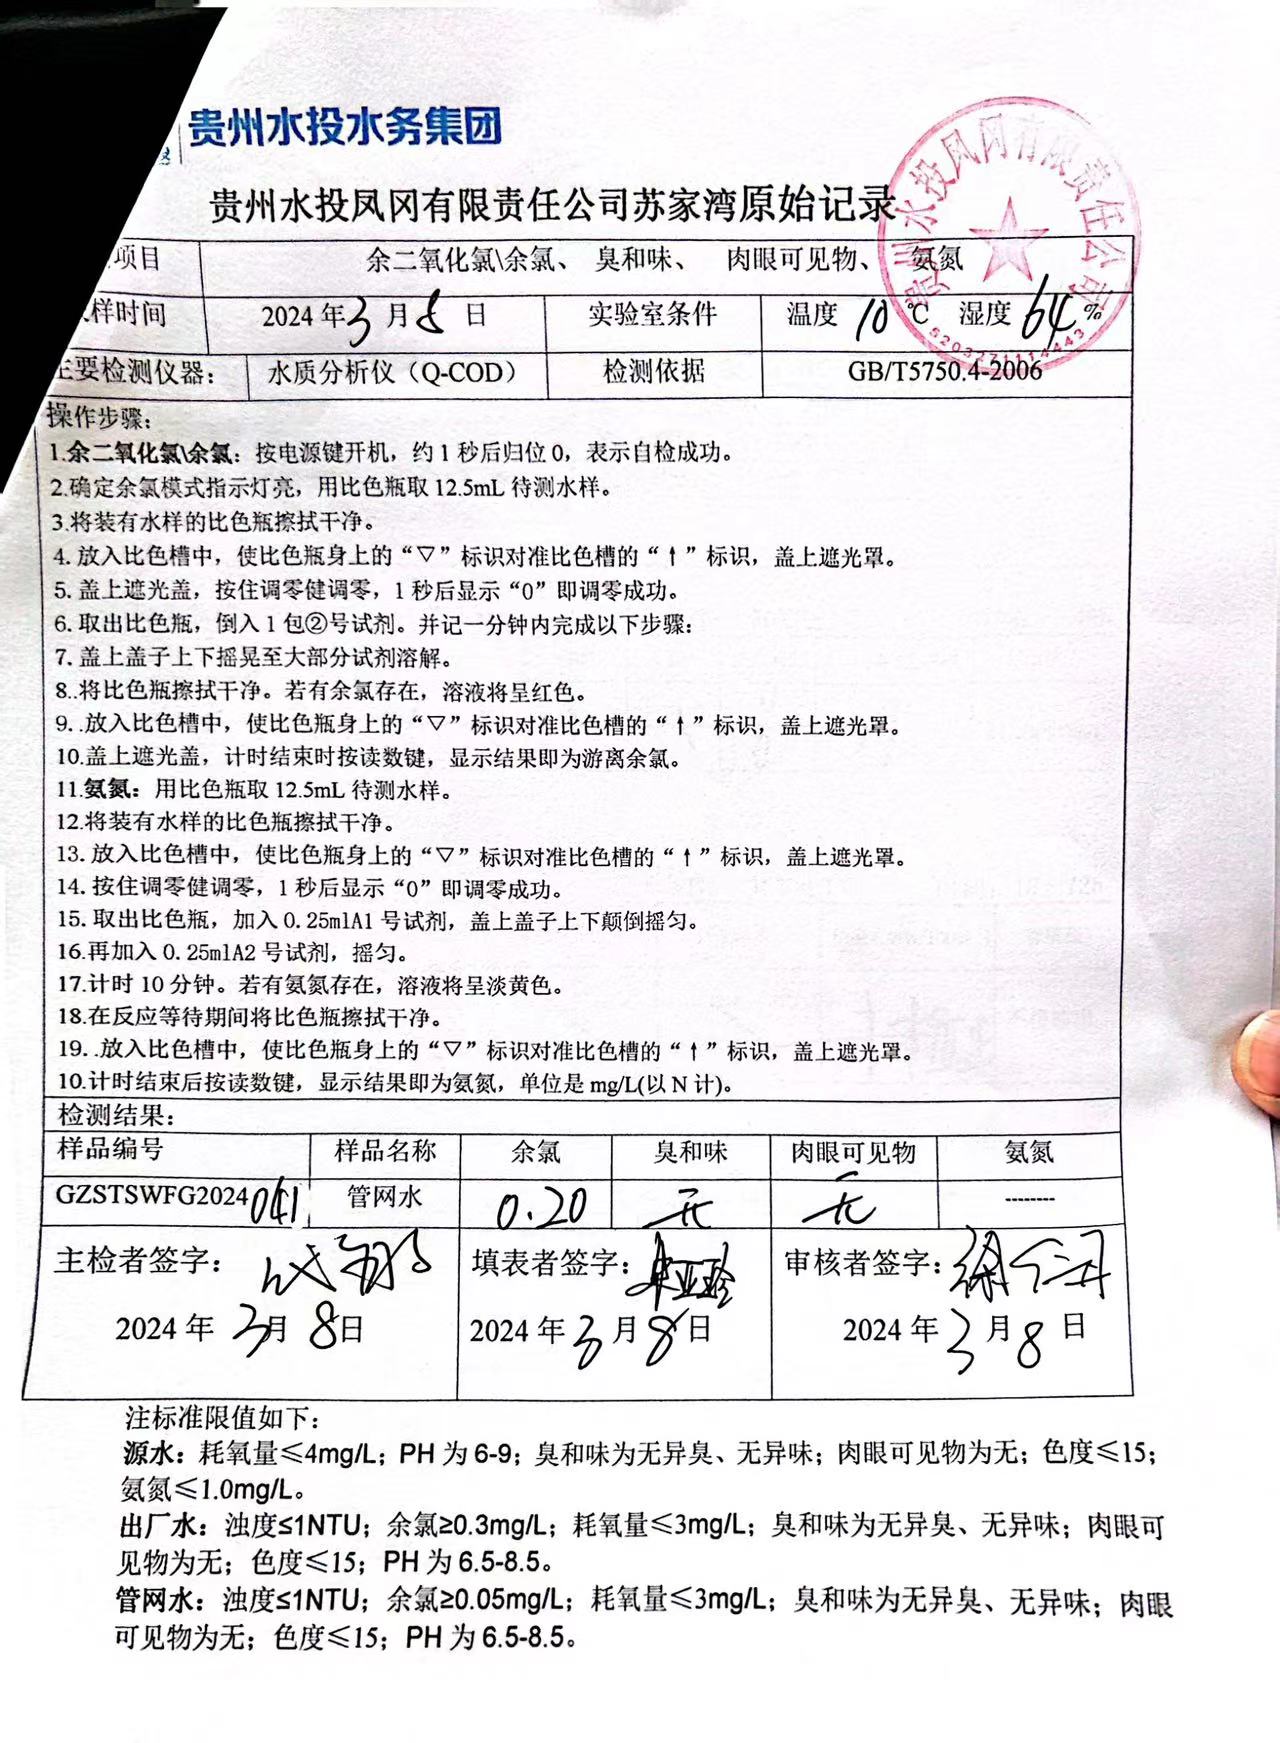 贵州水投水务集团
贵州水投凤冈有限责任公司苏家湾原始记录
贵州水投凤冈有限责任公司
5203271114443
项目 余二氧化氯\余氯、 臭和味、 肉眼可见物、 氨氮
样时间 2024年3月8日 实验室条件 温度 10℃ 湿度 64%
主要检测仪器： 水质分析仪（Q-COD） 检测依据 GB/T5750.4-2006
操作步骤：
1.余二氧化氯\余氯：按电源键开机，约1秒后归位0，表示自检成功。
2.确定余氯模式指示灯亮，用比色瓶取12.5mL待测水样。
3.将装有水样的比色瓶擦拭干净。
4. 放入比色槽中，使比色瓶身上的“▽”标识对准比色槽的“↑”标识，盖上遮光罩。
5. 盖上遮光盖，按住调零健调零，1秒后显示“0”即调零成功。
6. 取出比色瓶，倒入1包②号试剂。并记一分钟内完成以下步骤：
7. 盖上盖子上下摇晃至大部分试剂溶解。
8..将比色瓶擦拭干净。若有余氯存在，溶液将呈红色。
9. .放入比色槽中，使比色瓶身上的“▽”标识对准比色槽的“↑”标识，盖上遮光罩。
10.盖上遮光盖，计时结束时按读数键，显示结果即为游离余氯。
11.氨氮：用比色瓶取12.5mL待测水样。
12.将装有水样的比色瓶擦拭干净。
13. 放入比色槽中，使比色瓶身上的“▽”标识对准比色槽的“↑”标识，盖上遮光罩。
14. 按住调零健调零，1秒后显示“0”即调零成功。
15. 取出比色瓶，加入0.25mlA1号试剂，盖上盖子上下颠倒摇匀。
16.再加入0.25mlA2号试剂，摇匀。
17.计时10分钟。若有氨氮存在，溶液将呈淡黄色。
18.在反应等待期间将比色瓶擦拭干净。
19. .放入比色槽中，使比色瓶身上的“▽”标识对准比色槽的“↑”标识，盖上遮光罩。
10.计时结束后按读数键，显示结果即为氨氮，单位是mg/L(以N计)。
检测结果：
样品编号 样品名称 余氯 臭和味 肉眼可见物 氨氮
GZSTSWFG2024041 管网水 0.20 无 无 --------
主检者签字： 填表者签字： 审核者签字：
2024年3月8日 2024年3月8日 2024年3月8日
注标准限值如下：
源水：耗氧量≤4mg/L；PH为6-9；臭和味为无异臭、无异味；肉眼可见物为无；色度≤15；
氨氮≤1.0mg/L。
出厂水：浊度≤1NTU；余氯≥0.3mg/L；耗氧量≤3mg/L；臭和味为无异臭、无异味；肉眼可
见物为无；色度≤15；PH为6.5-8.5。
管网水：浊度≤1NTU；余氯≥0.05mg/L；耗氧量≤3mg/L；臭和味为无异臭、无异味；肉眼
可见物为无；色度≤15；PH为6.5-8.5。